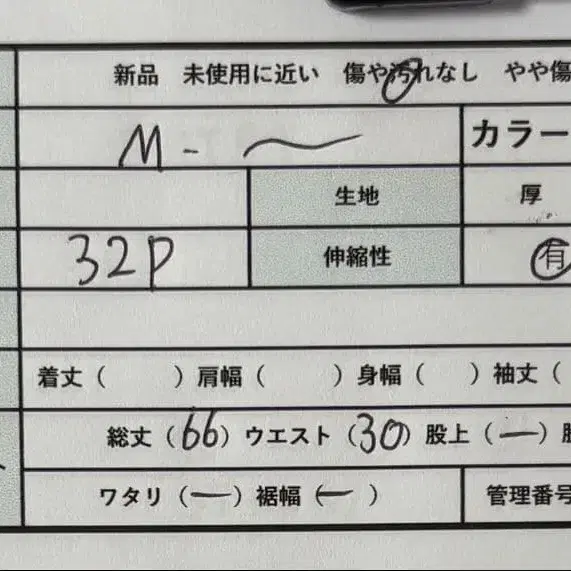 新品 未使用に近い 傷や汚れなし やや傷
M - 〜 カラー
生地 厚
32P 伸縮性 有
着丈( )肩幅( )身幅( )袖丈(
総丈(66)ウエスト(30)股上(ー)
ワタリ(ー)裾幅(ー) 管理番号